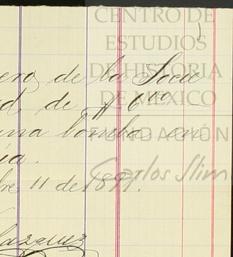 CENTRO DE
ESTUDIOS
DE HISTORIA
DE MÉXICO
FUNDACIÓN
Carlos Slim
de la Socie
de $ 6.00
una bomba en
11 de 1877.
Vazquez